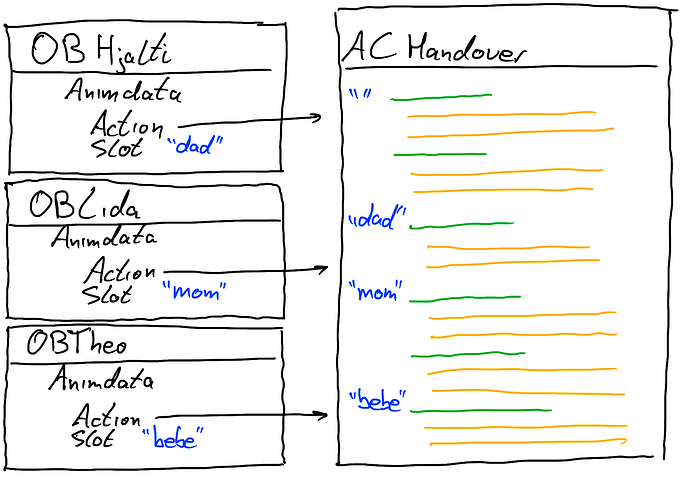 OB Hjalti
Animdata
Action
Slot "dad"
OB Lida
Animdata
Action
Slot "mom"
OBTheo
Animdata
Action
Slot "bebe"
AC Handover
""
"dad"
"mom"
"bebe"